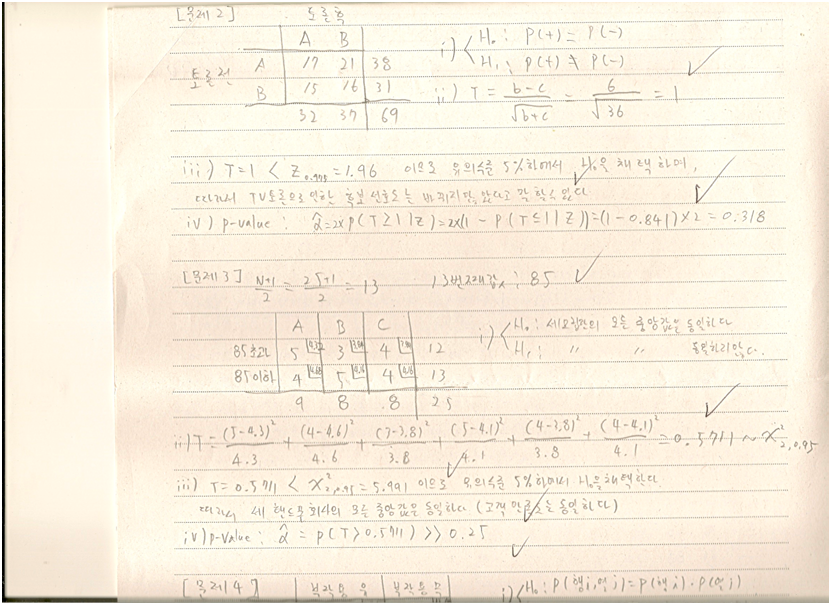 [문제2] 토론후
A B
토론전 A 17 21 38
B 15 16 31
32 37 69
i) H₀ : P(+) = P(-)
H₁ : P(+) ≠ P(-)
ii) T = (b-c)/√(b+c) = 6/√36 = 1
iii) T=1 < Z₀.₉₇₅ = 1.96 이므로 유의수준 5%하에서 H₀을 채택하며,
따라서 TV토론으로 인한 후보 선호도는 바뀌지 않았다고 할 수 있다
iv) p-value : α̂ = 2×P(T≥1|Z) = 2×(1 - P(T≤1|Z)) = (1-0.841)×2 = 0.318
[문제3] (N+1)/2 = (25+1)/2 = 13 13번째값 : 85
A B C
85초과 5 3 4 12
85이하 4 5 4 13
9 8 8 25
i) H₀ : 세모집단의 모든 중앙값은 동일하다
H₁ : 〃 〃 동일하지 않다.
ii) T = (5-4.3)²/4.3 + (4-4.6)²/4.6 + (3-3.8)²/3.8 + (5-4.1)²/4.1 + (4-3.8)²/3.8 + (4-4.1)²/4.1 = 0.5711 ~ X²₂,₀.₉₅
iii) T=0.5711 < X²₂,₀.₉₅ = 5.991 이므로 유의수준 5%하에서 H₀을 채택한다
따라서 세 핸드폰회사의 모든 중앙값은 동일하다 (고객 만족도는 동일하다)
iv) p-value : α̂ = P(T>0.5711) >> 0.25
[문제4]
i) H₀ : P(행i,열j) = P(행i)·P(열j)